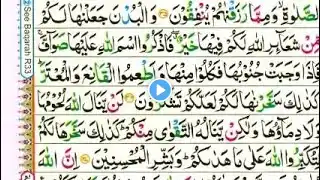 الصَّلٰوةِ وَمِمَّا رَزَقْنٰهُمْ يُنْفِقُوْنَ وَالْبُدْنَ جَعَلْنٰهَا لَكُمْ
مِّنْ شَعَآئِرِ اللّٰهِ لَكُمْ فِيْهَا خَيْرٌ فَاذْكُرُوا اسْمَ اللّٰهِ عَلَيْهَا صَوَآفَّ
فَاِذَا وَجَبَتْ جُنُوْبُهَا فَكُلُوْا مِنْهَا وَاَطْعِمُوا الْقَانِعَ وَالْمُعْتَرَّ
كَذٰلِكَ سَخَّرْنٰهَا لَكُمْ لَعَلَّكُمْ تَشْكُرُوْنَ لَنْ يَّنَالَ اللّٰهَ لُحُوْمُهَا
وَلَا دِمَآؤُهَا وَلٰكِنْ يَّنَالُهُ التَّقْوٰى مِنْكُمْ كَذٰلِكَ سَخَّرَهَا لَكُمْ
لِتُكَبِّرُوا اللّٰهَ عَلٰى مَا هَدٰىكُمْ وَبَشِّرِ الْمُحْسِنِيْنَ اِنَّ اللّٰهَ
See Baqarah R33